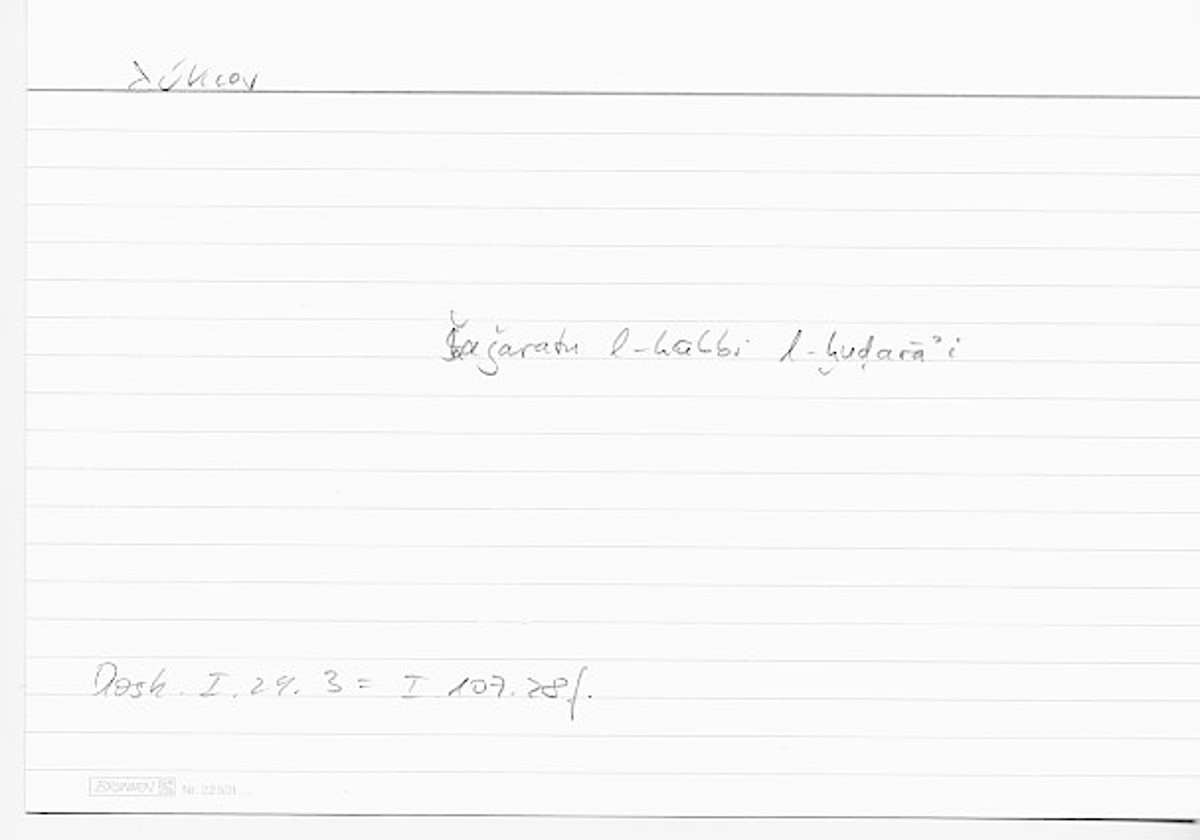 λύκιον
Šaǧaratu l-kalbi l-ḫuḍarāʾi
Diosk. I. 29. 3 = I 107. 28 f.
BRUNNEN Nr. 22501